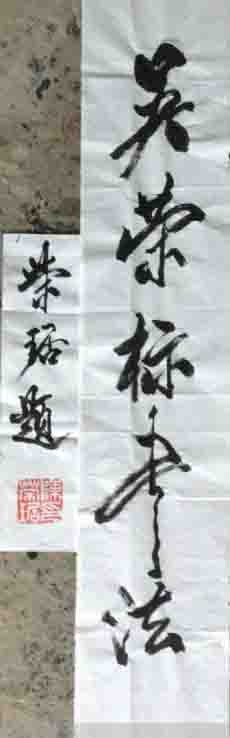 吴荣标书法
荣琚题